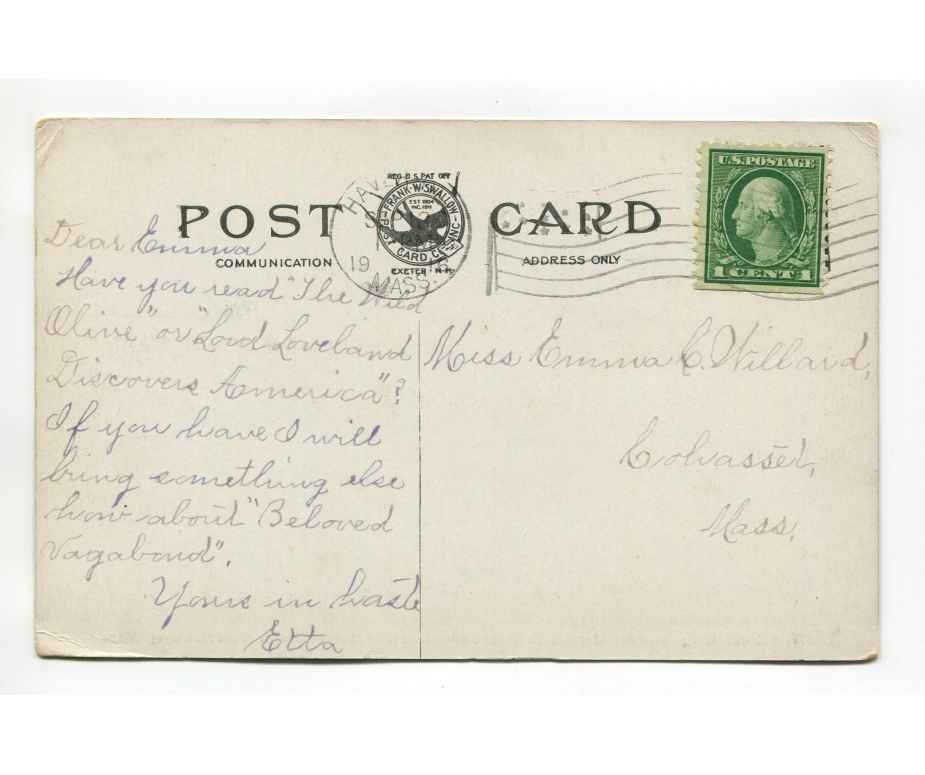 POST CARD
REG. U.S. PAT OFF
FRANK·W·SWALLOW
EST 1904
INC. 1911
POST CARD CO. INC.
EXETER N.H.
COMMUNICATION
ADDRESS ONLY
MASS.
19
U.S. POSTAGE
1 CENT 1
Dear Emma
Have you read "The Wild
Olive" or "Lord Loveland
Discovers America"?
If you have I will
bring something else
how about "Beloved
Vagabond".
Yours in haste
Etta
Miss Emma C. Willard,
Cohasset,
Mass.